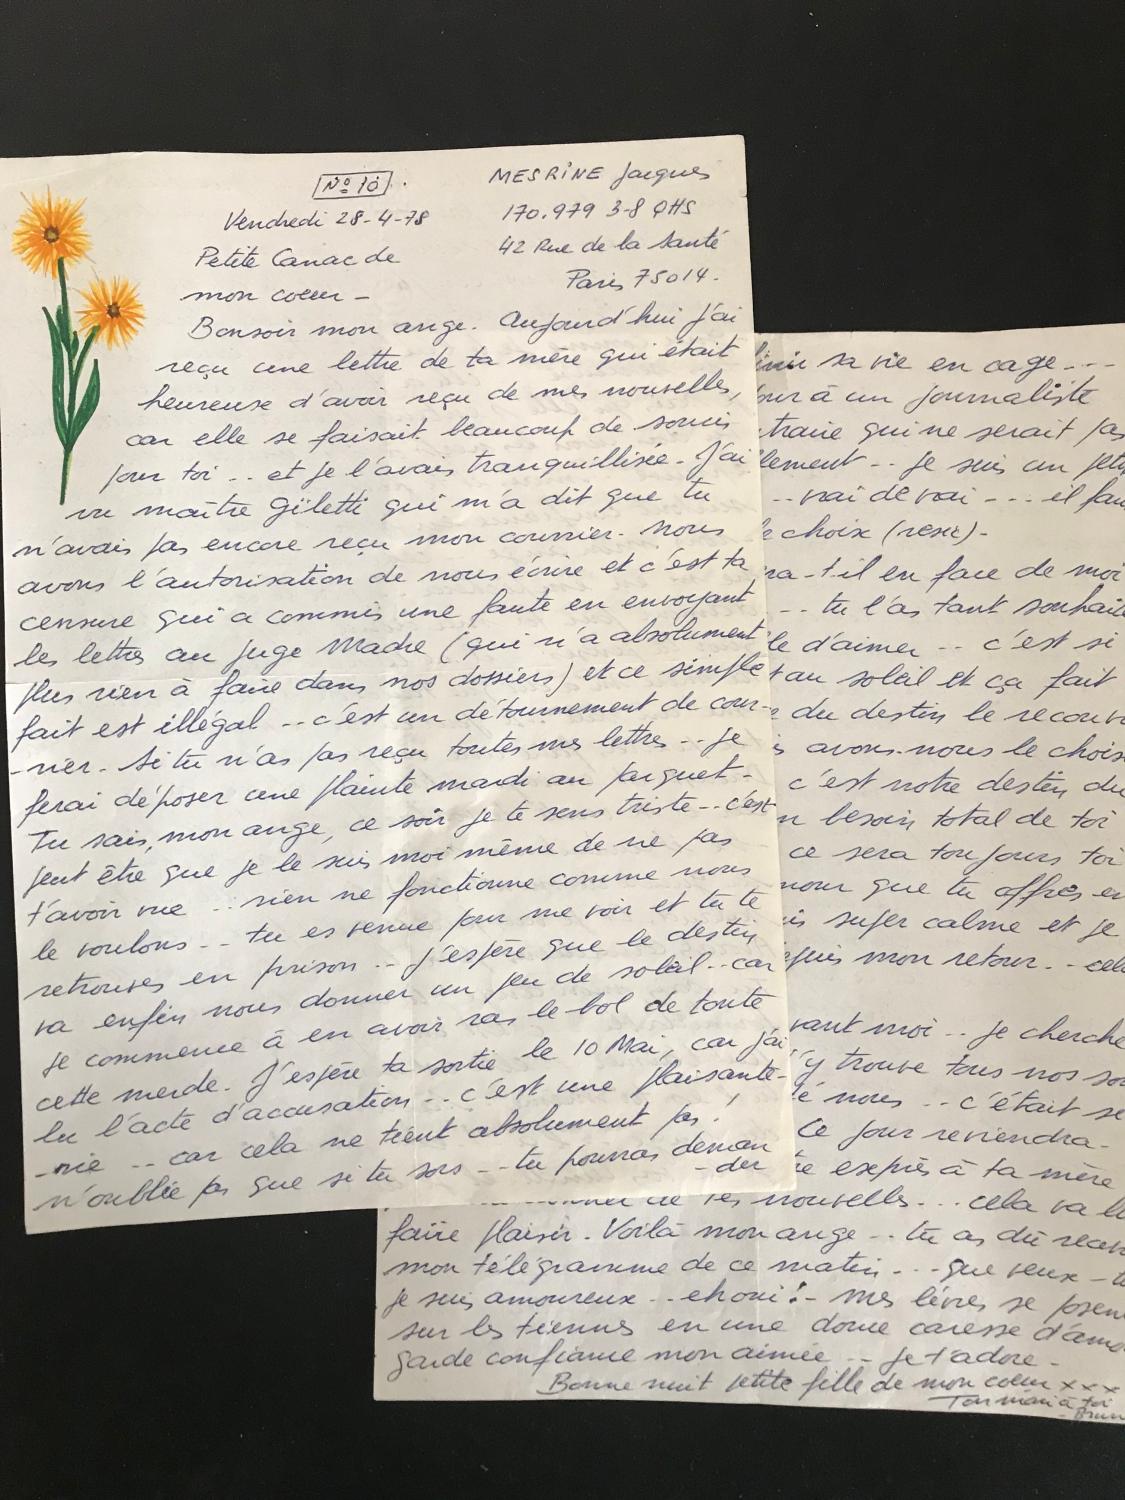 N° 10.
Vendredi 28-4-78
MESRINE Jacques
170.979 3-8 QHS
42 Rue de la Santé
Paris 75014.
Petite Canac de
mon coeur -
Bonsoir mon ange. Aujourd'hui j'ai
reçu une lettre de ta mère qui était
heureuse d'avoir reçu de mes nouvelles,
car elle se faisait beaucoup de soucis
pour toi .. et je l'avais tranquillisée. J'ai
vu maître Giletti qui m'a dit que tu
n'avais pas encore reçu mon courrier. Nous
avons l'autorisation de nous écrire et c'est ta
censure qui a commis une faute en envoyant
les lettres au juge Madre (qui n'a absolument
plus rien à faire dans nos dossiers) et ce simple
fait est illégal .. c'est un détournement de cour-
-rier. Si tu n'as pas reçu toutes mes lettres .. je
ferai déposer une plainte mardi au parquet.
Tu sais, mon ange, ce soir je te sens triste .. c'est
peut être que je le suis moi même de ne pas
t'avoir vue .. rien ne fonctionne comme nous
le voulons .. tu es venue pour me voir et tu te
retrouves en prison .. j'espère que le destin
va enfin nous donner un peu de soleil .. car
je commence à en avoir ras le bol de toute
cette merde. J'espère ta sortie le 10 Mai, car j'ai
lu l'acte d'accusation .. c'est une plaisante-
-rie .. car cela ne tient absolument pas !
n'oublie pas que si tu sors .. tu pourras deman
-der
sa vie en cage ...
à un journaliste
qui ne serait pas
je suis un
.. vrai de vrai ... il
choix (rexe).
-t-il en face de moi
.. tu l'as tant
d'aimer .. c'est si
au soleil et ça fait
du destin le
avons-nous le
c'est notre destin
besoin total de toi
ce sera toujours toi
que tu offres en
super calme et je
mon retour ..
moi .. je cherche
trouve tous nos
nous .. c'était
Ce jour reviendra.
exprès à ta mère
de tes nouvelles ... cela va
faire plaisir. Voilà mon ange .. tu as dû
mon télégramme de ce matin ... que veux
je suis amoureux .. eh oui ! mes lèvres se
sur les tiennes en une douce caresse
garde confiance mon aimée .. je t'adore.
Bonne nuit petite fille de mon coeur x x x
Ton mari à toi